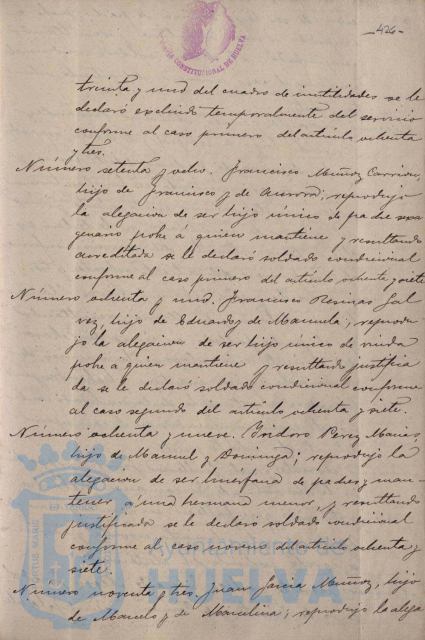 -426-
CONSTITUCIONAL DE HUELVA
treinta y uno del cuadro de inutilidades se le
declaró excluido temporalmente del servicio
conforme al caso primero del artículo ochenta
y tres.
Número setenta y ocho. Francisco Muñoz Carrion,
hijo de Francisco y de Aurora; reprodujo
la alegacion de ser hijo único de padre sexa
genario pobre á quien mantiene y resultando
acreditada se le declaró soldado condicional
conforme al caso primero del artículo ochenta y siete
Número ochenta y uno. Francisco Gal
vez, hijo de Eduardo y de Manuela; reprodu
jo la alegacion de ser hijo único de viuda
pobre á quien mantiene y resultando justifica
da se le declaró soldado condicional conforme
al caso segundo del artículo ochenta y siete.
Número ochenta y nueve. Isidoro Perez Macias,
hijo de Manuel y Dominga; reprodujo la
alegacion de ser huérfano de padres y man-
tener a una hermana menor, y resultando
justificada se le declaró soldado condicional
conforme al caso noveno del artículo ochenta y
siete.
Número noventa y tres. Juan Garcia Muñoz, hijo
de Marcelo y de Marcelina; reprodujo la alega
Ayuntamiento
HUELVA